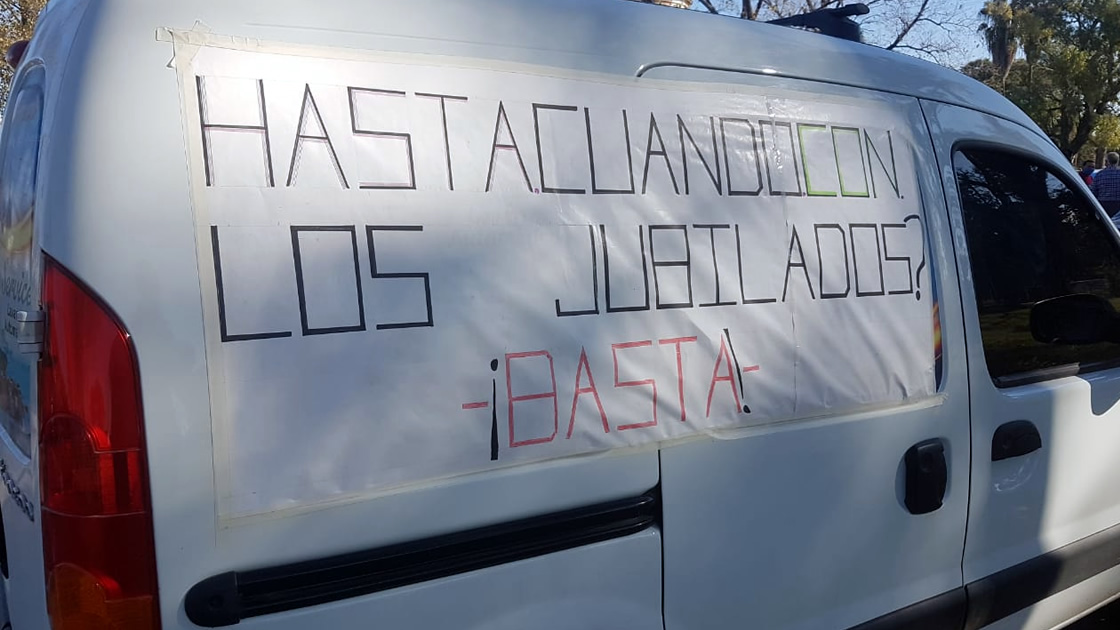 HASTA.CUANDO.CON.
LOS JUBILADOS?
-¡BASTA!-